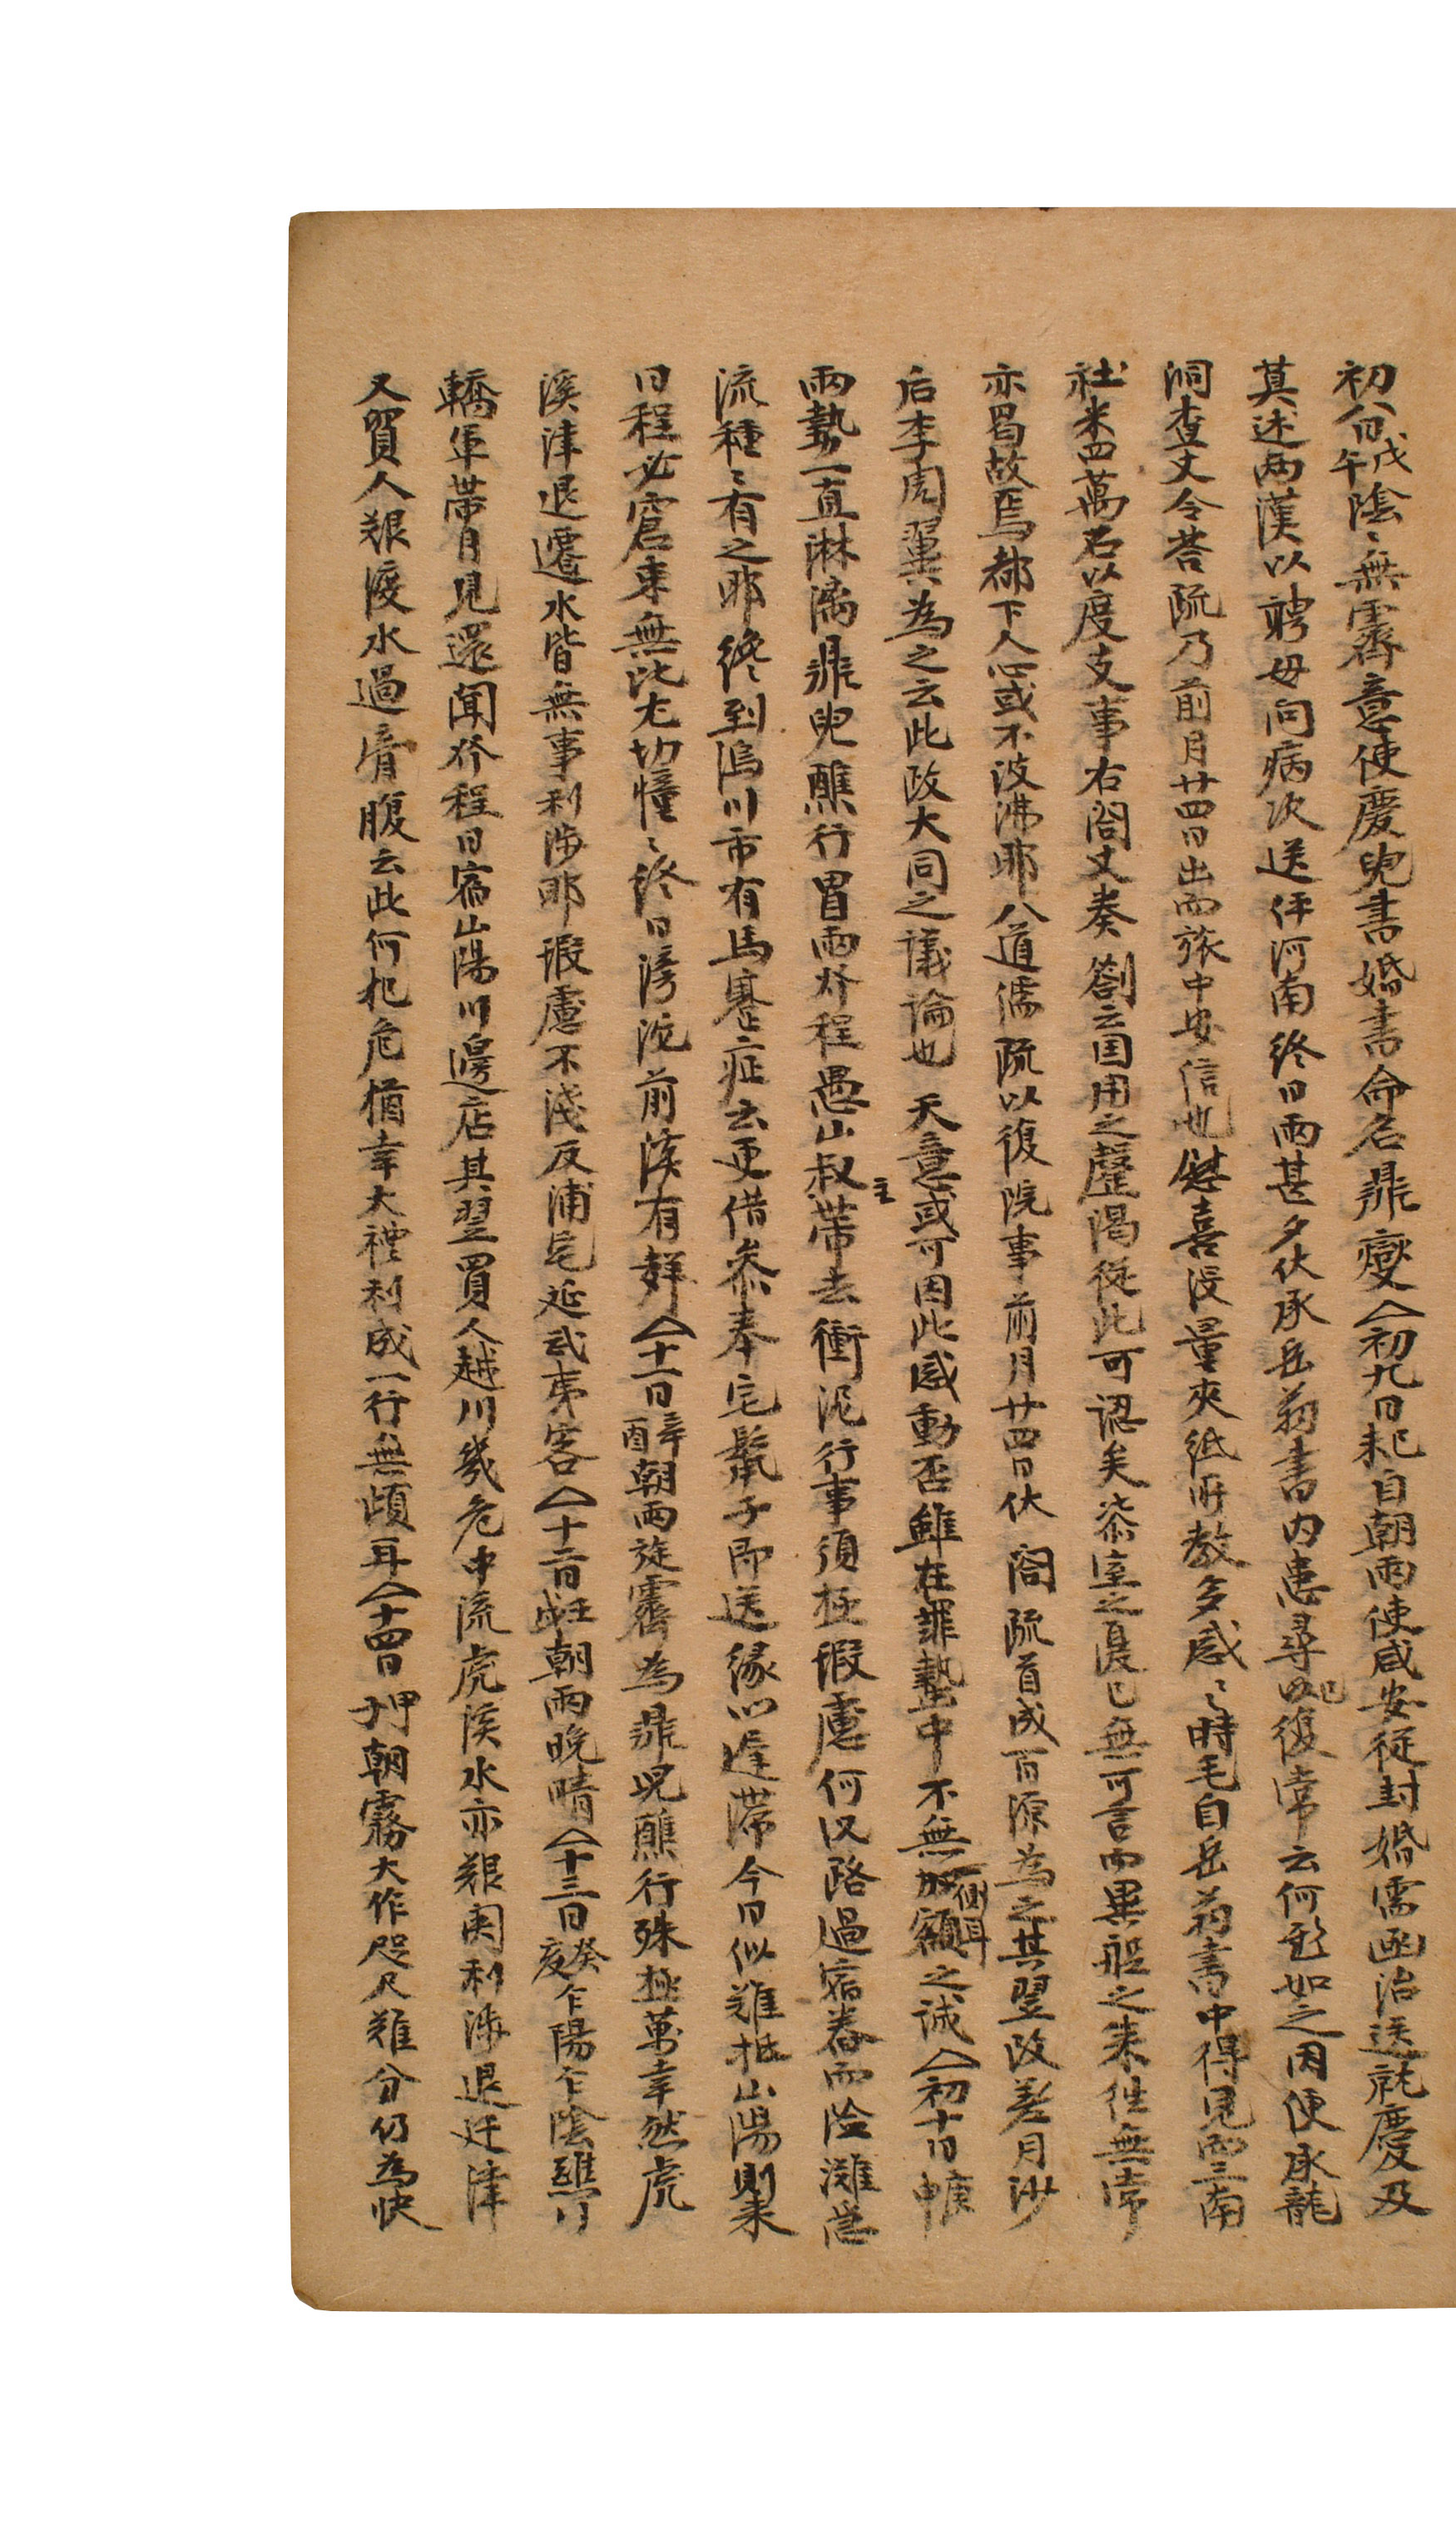 初八日戊午陰〻無霽意使慶兒書婚書命名鼎燮〈初九日己未自朝雨使咸安從封婚需函治送祗慶及
其述兩漢以聘母向病次送伻河南終日雨甚夕伏承岳翁書內患尋以復常云何慰如之因便承龍
洞查丈令答疏乃前月廿四日出而旅中安信也慰喜沒量夾紙所教多感〻時毛自岳翁書中得見而三南
社米四萬石以度支事右閤丈奏劄云国用之罄渴從此可認矣漆室之憂已無可言而異船之來往無常
亦曷故焉都下人心或不波沸耶八道儒疏以復院事前月廿四日伏閤疏首成百源為之其翌改差月沙
后李周翼為之云此政大同之議論也天意或可因此感動否雖在罪蟄中不無加額之誠〈初十日庚申
雨勢一直淋漓鼎兒醮行冒雨登程愚山叔主帶去衝泥行事須極瑕慮何以路過宿養而險灘急
流種〻有之耶終到潙川市有馬蹇症云更借參奉宅鬣子即送緣以遲滯今日似難抵山陽則來
日程必窘束無比尤切憧〻終日滂沱前溪有舜〈十一日辛酉朝雨旋霽為鼎兒醮行殊極萬幸然虎
溪津退遷水皆無事利涉耶瑕慮不淺反浦宅延武夷客〈十二日壬戌朝雨晩晴〈十三日癸亥乍陽乍陰醮行
轎軍帶月見還聞登程日宿山陽川邊店其翌買人越川幾危中流虎溪水亦艱関利涉退迁津
又買人艱渡水過膏腹云此何犯危猶幸大禮利成一行無頉耳〈十四日甲子朝霧大作咫尺難分仍為快